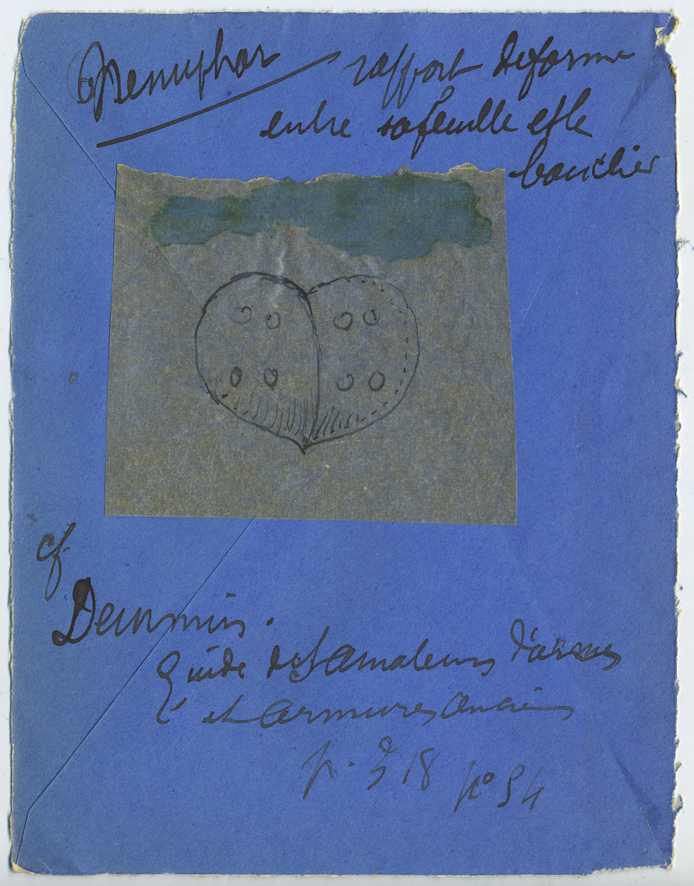 Nenuphar rapport de forme
entre sa feuille et le
bouclier
cf.
Demmin.
Guide des Amateurs d'armes
et armures ancien
p. 518 no 54